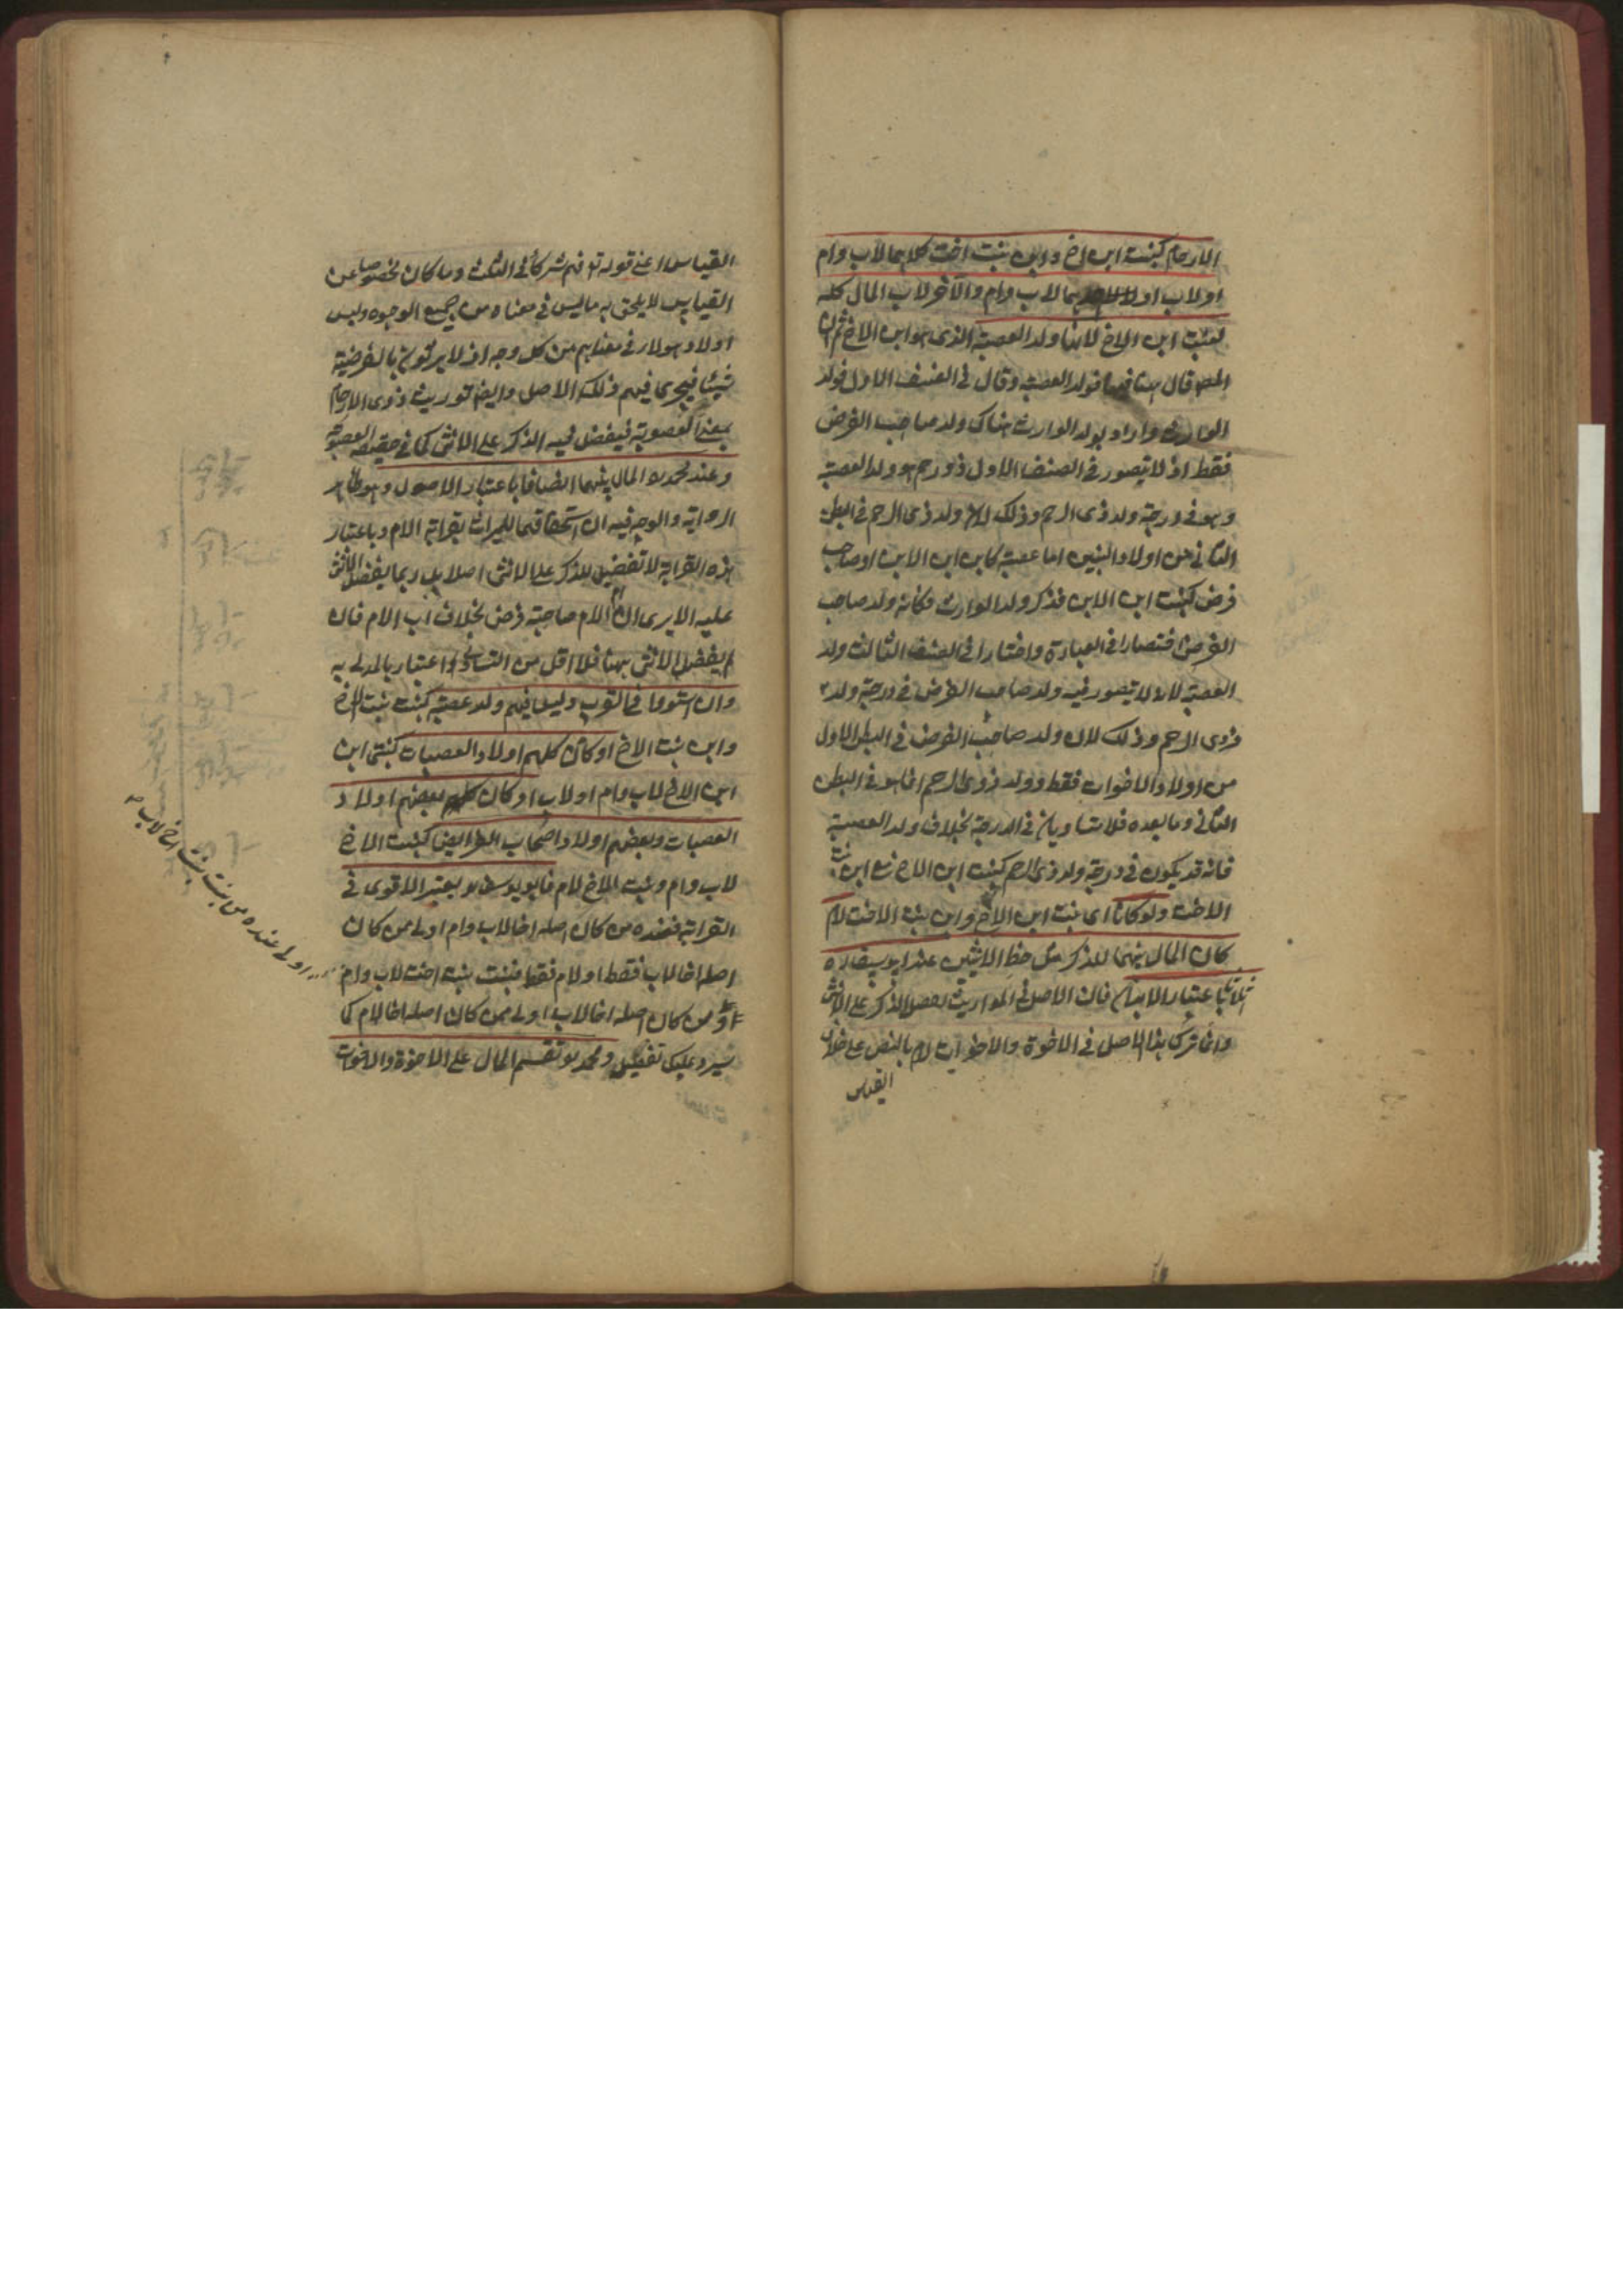 الارحام كبنت ابن اخ وابن بنت اخت كلاهما لاب وام
او لاب او احدهما لاب وام والآخر لاب المال كله
لبنت ابن الاخ لانها ولد العصبة الذى هو ابن الاخ ثم ان
المص قال هنا فولد العصبة وقال فى الصنف الاول فولد
الوارث واراد بولد الوارث هناك ولد صاحب الفرض
فقط اذ لا يتصور فى الصنف الاول ذو رحم هو ولد العصبة
وهو فى درجة ولد ذى الرحم وذلك لان ولد ذى الرحم فى البطن
الثانى من اولاد البنين اما عصبة كابن ابن الابن او صاحب
فرض كبنت ابن الابن فذكر ولد الوارث وكانه ولد صاحب
الفرض اقتصارا فى العبارة واختار فى الصنف الثالث ولد
العصبة لانه لا يتصور فيه ولد صاحب الفرض فى درجة ولد
ذوى الرحم وذلك لان ولد صاحب الفرض فى البطن الاول
من اولاد الاخوات فقط وولد ذوى الرحم انما هو فى البطن
الثانى وما بعده فلا يتساويان فى الدرجة بخلاف ولد العصبة
فانه قد يكون فى درجة ولد ذى الرحم كبنت ابن الاخ مع ابن بنت
الاخت ولو كانا اى بنت ابن الاخ وابن بنت الاخت لام
كان المال بينهما للذكر مثل حظ الانثيين عند ابى يوسف ره
اثلاثا باعتبار الابدان فان الاصل فى المواريث تفضيل الذكر على الانثى
وانما ترك هذا الاصل فى الاخوة والاخوات لام بالنص على خلاف
القياس
القياس اعنى قوله تع فهم شركاء فى الثلث وما كان مخصوصا عن
القياس لا يلحق به ما ليس فى معناه من جميع الوجوه وليس
اولاد هولاء فى معناهم من كل وجه اذ لا يرثون بالفرضية
شيئا فيجرى فيهم ذلك الاصل وايضا توريث ذوى الارحام
بمعنى العصوبة فيفضل فيه الذكر على الانثى كما فى حقيقة العصوبة
وعند محمد ره المال بينهما انصافا باعتبار الاصول وهو ظاهر
الرواية والوجه فيه ان استحقاقهما للميراث بقرابة الام وباعتبار
هذه القرابة لا تفضيل للذكر على الانثى اصلا بل ربما يفضل الانثى
عليه الا يرى ان ام الام صاحبة فرض بخلاف اب الام فان
لم يفضل الانثى ههنا فلا اقل من التساوى اعتبارا بالمدلى به
وان استووا فى القرب وليس فيهم ولد عصبة كبنت بنت الاخ
وابن بنت الاخ او كان كلهم اولاد العصبات كبنتى ابن
ابن الاخ لاب وام او لاب او كان بعضهم اولاد
العصبات وبعضهم اولاد اصحاب الفرايض كبنت الاخ
لاب وام وبنت الاخ لام فابو يوسف ره يعتبر الاقوى فى
القرابة فعنده من كان اصله اخا لاب وام اولى ممن كان
اصله اخا لاب فقط او لام فقط فبنت بنت اخت لاب وام
اولى عنده من بنت بنت اخ لاب
ومن كان اصله اخا لاب اولى ممن كان اصله اخا لام كما
سيرد عليك تفصيله ومحمد ره يقسم المال على الاخوة والاخوات